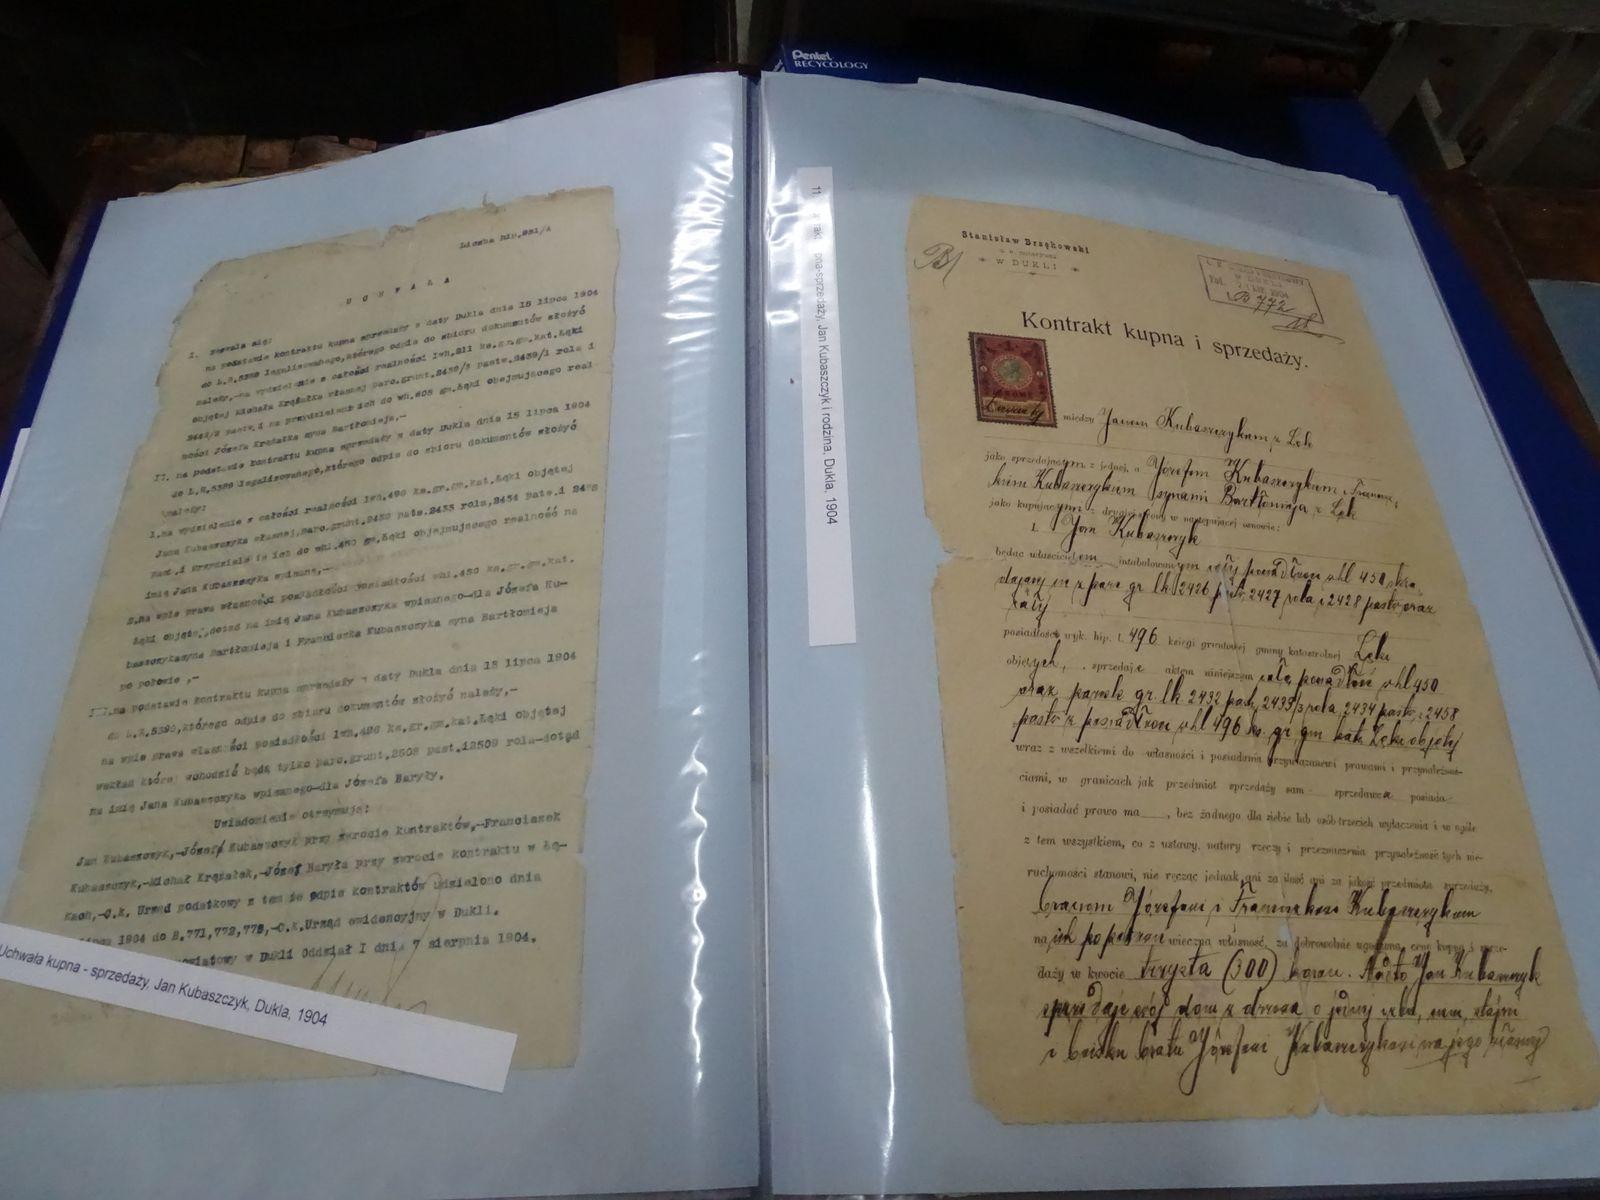 Pentel
RECYCOLOGY
Liczba hip.931/A
U C H W A Ł A
I. Zezwala się:
na podstawie kontraktu kupna sprzedaży z daty Dukla dnia 15 lipca 1904
do L.R.5388 legalizowanego,którego odpis do zbioru dokumentów złożyć
należy,-na wydzielenie z całości realności lwh.211 ks.gr.gm.kat.Łęki
objętej Michała Krężałka własnej parc.grunt.2439/3 pastw.2439/1 rola i
2442/2 pastw.i na przydzielenie ich do wh.605 gm.Łęki obejmującego real
ności Józefa Krężałka syna Bartłomieja,-
II. na podstawie kontraktu kupna sprzedaży z daty Dukla dnia 15 lipca 1904
do L.R.5389 legalizowanego,którego odpis do zbioru dokumentów złożyć
należy:
1.na wydzielenie z całości realności lwh.496 ks.gr.gm.kat.Łęki objętej
Jana Kubaszczyka własnej,parc.grunt.2432 past.2433 rola,2434 past.i 2458
past.i przydzielenie ich do whl.450 gm.Łęki obejmującego realność na
imię Jana Kubaszczyka wpisaną,-
2.na wpis prawa własności posiadłości whl.450 ks.gr.gm.kat.
Łęki objętej,dotąd na imię Jana Kubaszczyka wpisanego-dla Józefa Ku-
baszczykasyna Bartłomieja i Franciszka Kubaszczyka syna Bartłomieja
po połowie ,-
III.na podstawie kontraktu kupna sprzedaży z daty Dukla dnia 15 lipca 1904
do L.R.5390,którego odpis do zbioru dokumentów złożyć należy,-
na wpis prawa własności posiadłości lwh.496 ks.gr.gm.kat.Łęki objętej
wskład której wchodzić będą tylko parc.grunt.2508 past.i2509 rola-dotąd
na imię Jana Kubaszczyka wpisanego-dla Józefa Baryły.
Uwiadomienie otrzymują:
Jan Kubaszczyk,-Józef Kubaszczyk przy zwrocie kontraktów,-Franciszek
Kubaszczyk,-Michał Krężałek,-Józef Baryła przy zwrocie kontraktu w Łę-
kach,-C.k. Urząd podatkowy z tem że odpis kontraktów udzielono dnia
lipca 1904 do B.771,772,773,-C.k.Urząd ewidencyjny w Dukli.
powiatowy w Dukli Oddział I dnia 7 sierpnia 1904.
Uchwała kupna - sprzedaży, Jan Kubaszczyk, Dukla, 1904
11. kupna-sprzedaży, Jan Kubaszczyk i rodzina, Dukla, 1904
Stanisław Brzękowski
W DUKLI
B 772
Kontrakt kupna i sprzedaży.
między Janem Kubaszczykem z Łęk
jako sprzedającym z jednej, a Józefem Kubaszczykem i Francisz-
kiem Kubaszczykem synami Bartłomieja z Łęk
jako kupującym z drugiej strony w następującej osnowie:
I. Jan Kubaszczyk
będąc właścicielem intabulowanym całej posiadłości whl 450
z parc gr lk 2426 past, 2427 rola i 2428 pastw oraz
całej
posiadłości wyk. hip. l. 496 księgi gruntowej gminy katastralnej Łęki
objętych, sprzedaje aktem niniejszym całą posiadłość whl 450
oraz parcele gr. lk 2432 past, 2433/3 rola 2434 pastw i 2458
pastw z posiadłości whl 496 ks. gr. gm kat. Łęki objętej
wraz z wszelkiemi do własności i posiadania przywiązanemi prawami i przynależnoś-
ciami, w granicach jak przedmiot sprzedaży sam sprzedawca posiada
i posiadać prawo ma, bez żadnego dla siebie lub osób trzecich wyłączenia i w ogóle
z tem wszystkiem, co z ustawy, natury rzeczy i przeznaczenia przynależność tych nie-
ruchomości stanowi, nie ręcząc jednak ani za ilość ani za jakość przedmiotu sprzedaży,
braciom Józefowi i Franciszkowi Kubaszczykom
na ich po połowie wieczną własność, za dobrowolnie ugodzoną cenę kupna i sprze-
daży w kwocie trzysta (300) koron. Nadto Jan Kubaszczyk
sprzedaje swój dom z drzewa o jednej izbie, sieni, stajni
i boisku bratu Józefowi Kubaszczykowi na jego własność